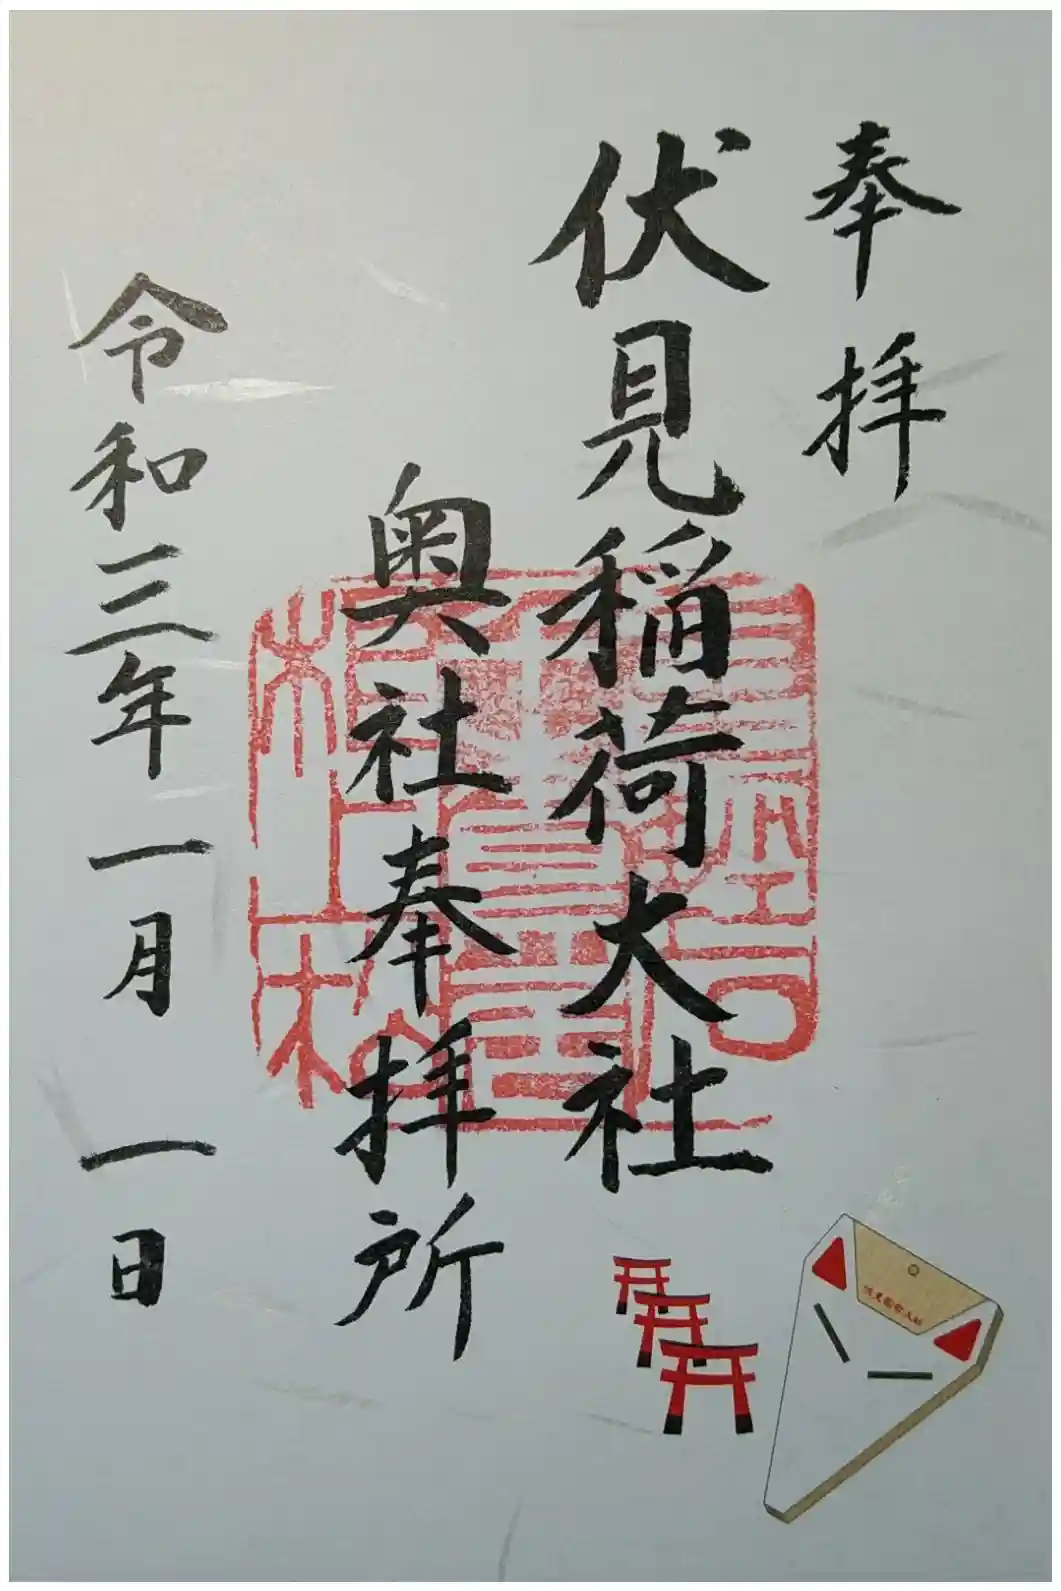 奉拝
伏見稲荷大社
奥社奉拝所
令和三年一月一日
伏見稲荷大社